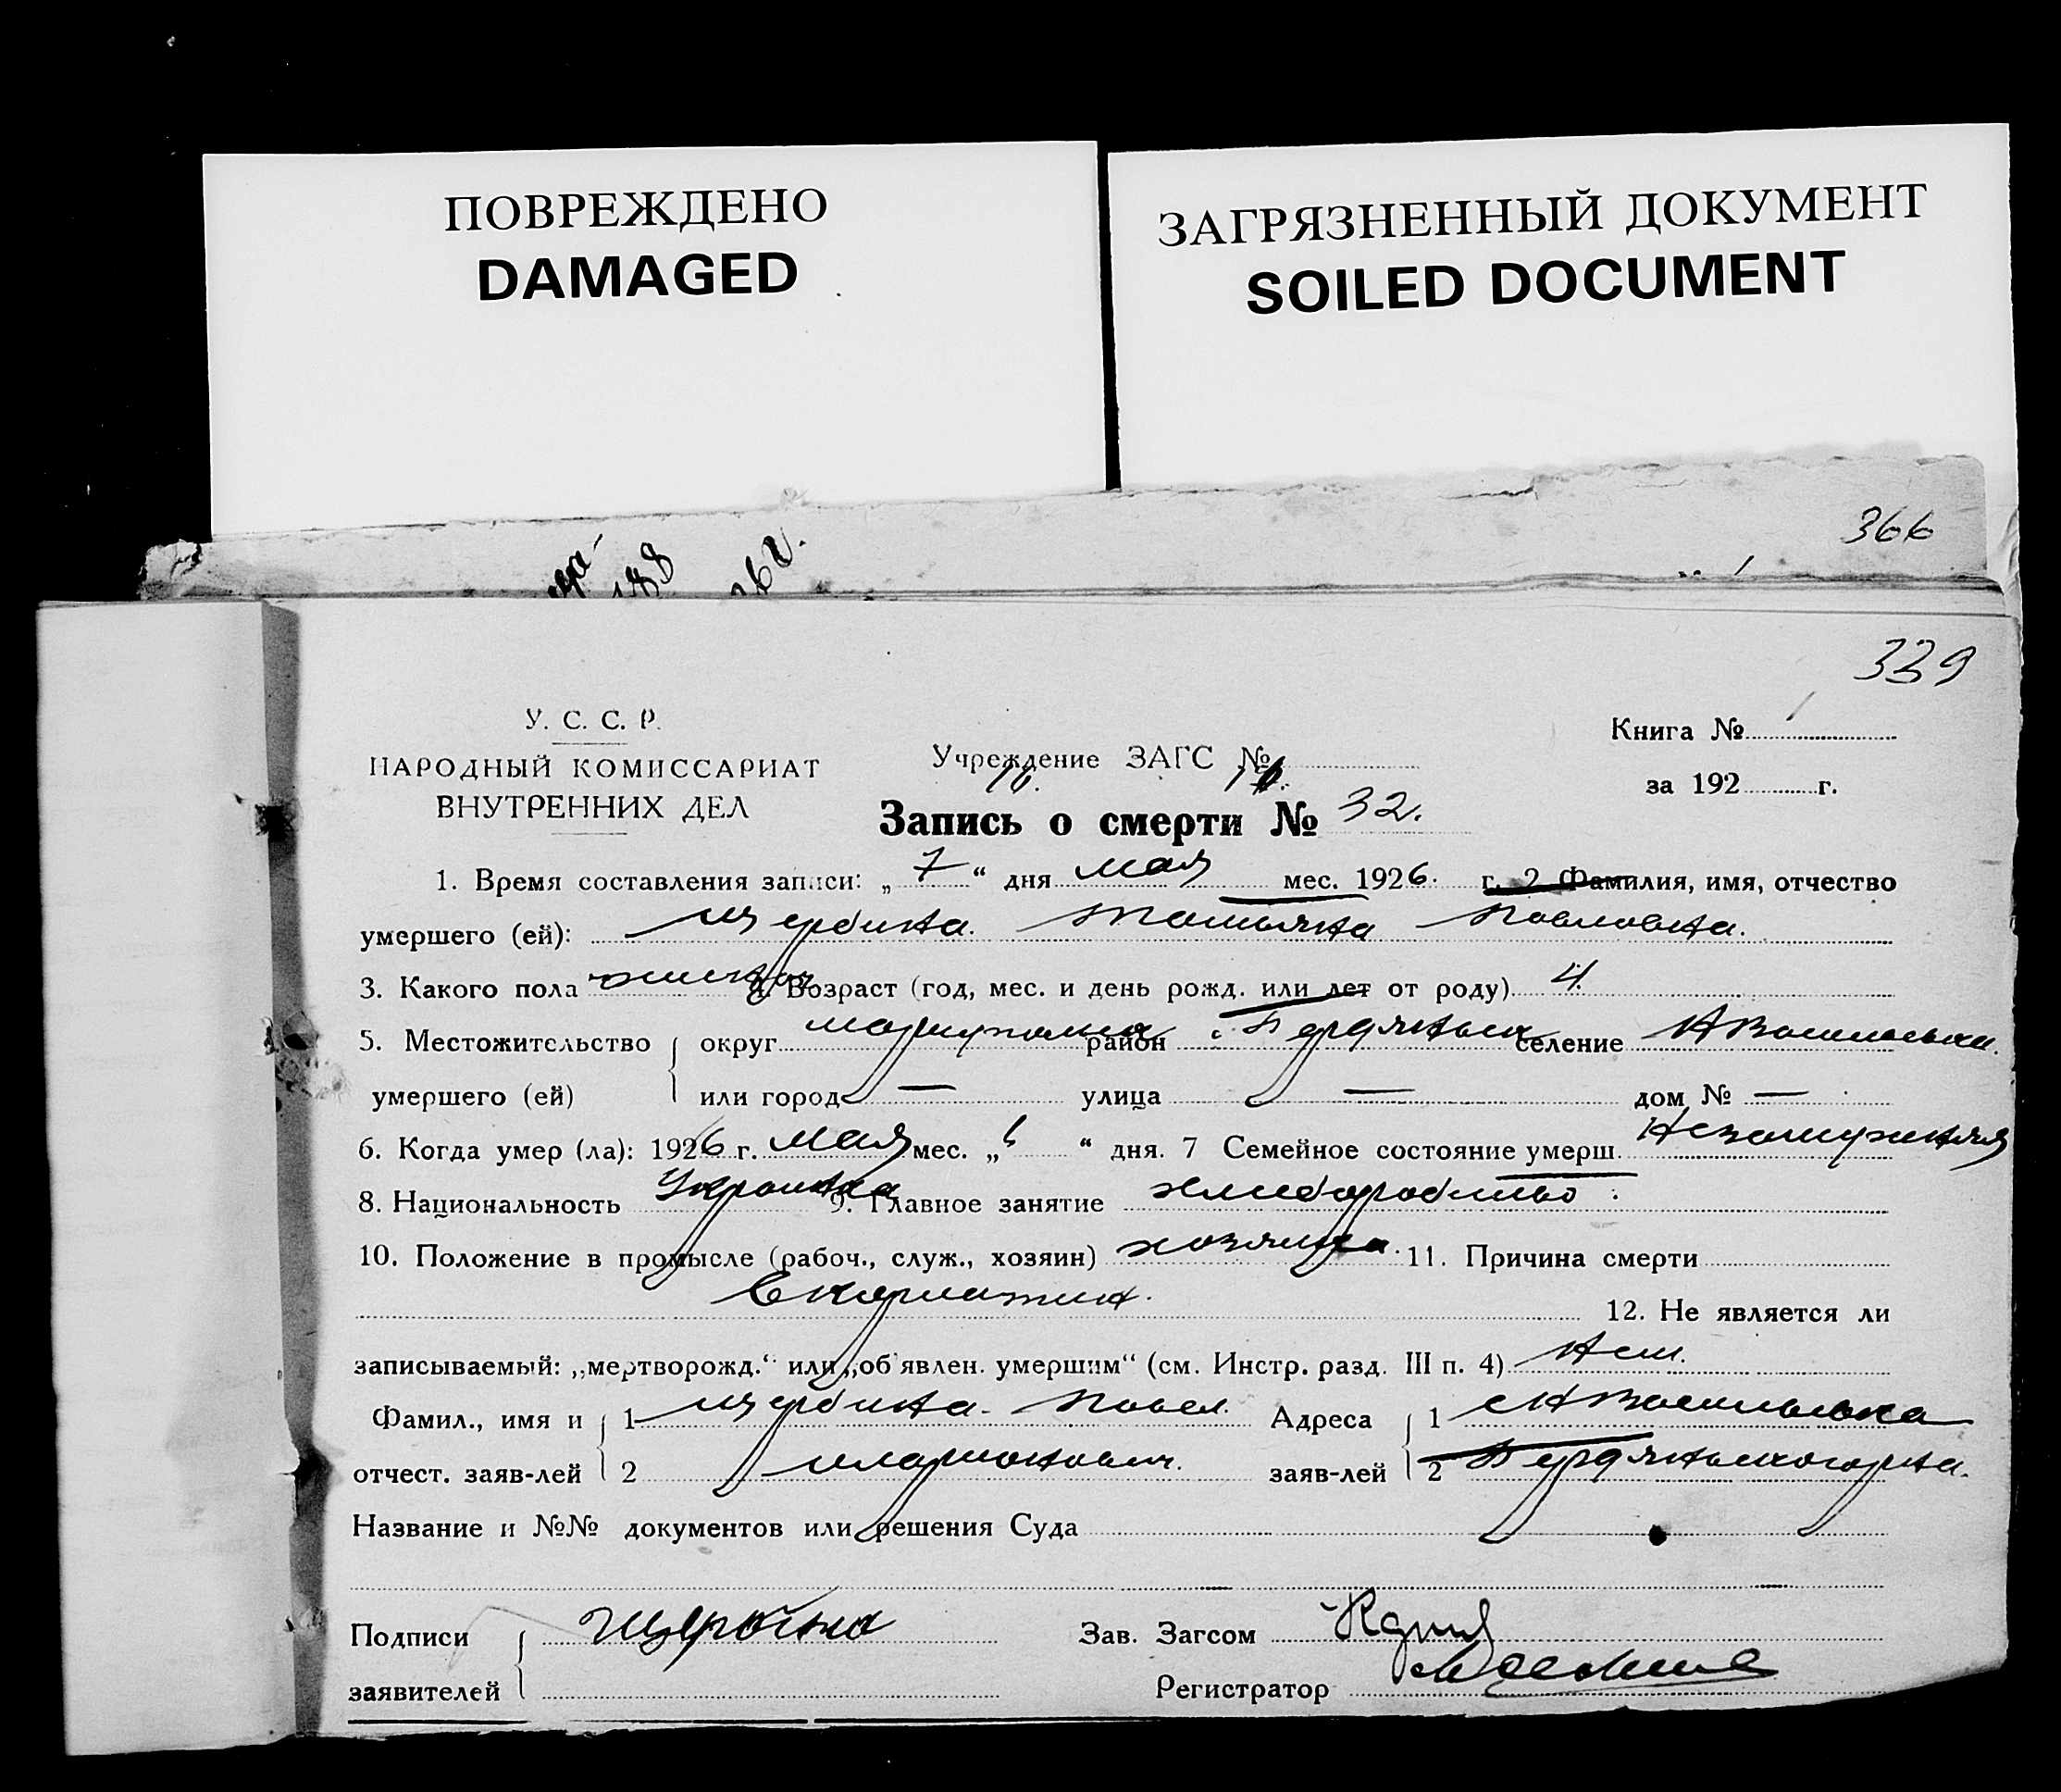 ПОВРЕЖДЕНО
DAMAGED
ЗАГРЯЗНЕННЫЙ ДОКУМЕНТ
SOILED DOCUMENT
366
188
339
У. С. С. Р.
НАРОДНЫЙ КОМИССАРИАТ
ВНУТРЕННИХ ДЕЛ
Учреждение ЗАГС №
Книга № 1
за 192 г.
Запись о смерти № 32.
1. Время составления записи: „ 7 “ дня мая мес. 1926. г. 2 Фамилия, имя, отчество
умершего (ей): Щербина. Татьяна Павловна.
3. Какого пола женская 4. Возраст (год, мес. и день рожд. или лет от роду) 4.
5. Местожительство округ район селение
умершего (ей) или город — улица — дом № —
6. Когда умер (ла): 1926 г. мая мес. „ “ дня. 7 Семейное состояние умерш. Незамужняя
8. Национальность Украинка 9. Главное занятие
10. Положение в промысле (рабоч., служ., хозяин) 11. Причина смерти
Скарлатина. 12. Не является ли
записываемый: „мертворожд.“ или „об'явлен. умершим“ (см. Инстр. разд. III п. 4) Нет.
Фамил., имя и 1 Щербина. Павел Адреса 1
отчест. заяв-лей 2 Иларионович. заяв-лей 2
Название и №№ документов или решения Суда
Подписи Щербина Зав. Загсом
заявителей Регистратор